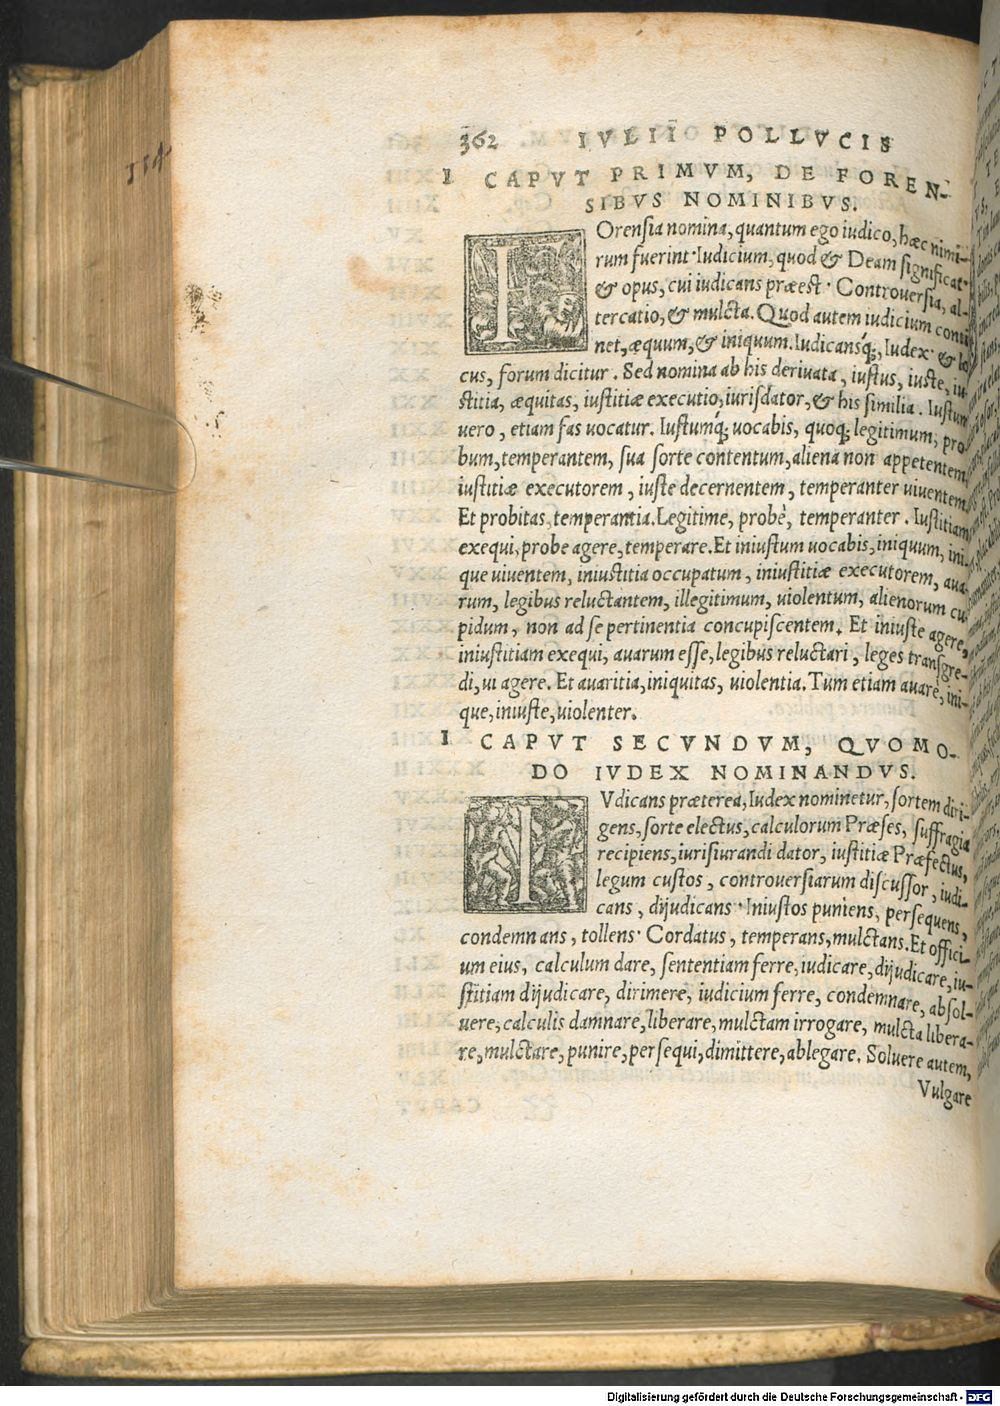 114
362 IVLII POLLVCIS
I CAPVT PRIMVM, DE FOREN-
SIBVS NOMINIBVS.
FOrensia nomina, quantum ego iudico, hæc nimi-
rum fuerint. Iudicium, quod & Deam significat,
& opus, cui iudicans præest. Controuersia, al-
tercatio, & mulcta. Quod autem iudicium conti
net, æquum, & iniquum. Iudicansq́;, Iudex. & lo
cus, forum dicitur. Sed nomina ab his deriuata, iustus, iuste, iu
stitia, æquitas, iustitiæ executio, iurisdator, & his similia. Iustum
uero, etiam fas uocatur. Iustumq́; uocabis, quoq; legitimum, pro
bum, temperantem, sua sorte contentum, aliena non appetentem,
iustitiæ executorem, iuste decernentem, temperanter uiuentem.
Et probitas, temperantia. Legitime, probè, temperanter. Iustitiam
exequi, probe agere, temperare. Et iniustum uocabis, iniquum, ini
que uiuentem, iniustitia occupatum, iniustitiæ executorem, aua
rum, legibus reluctantem, illegitimum, uiolentum, alienorum cu
pidum, non ad se pertinentia concupiscentem. Et iniuste agere,
iniustitiam exequi, auarum esse, legibus reluctari, leges transgre-
di, ui agere. Et auaritia, iniquitas, uiolentia. Tum etiam auarè, ini-
que, iniuste, uiolenter.
I CAPVT SECVNDVM, QVOMO-
DO IVDEX NOMINANDVS.
IVdicans præterea, Iudex nominetur, sortem diri-
gens, sorte electus, calculorum Præses, suffragia
recipiens, iurisiurandi dator, iustitiæ Præfectus,
legum custos, controuersiarum discussor, iudi-
cans, dijudicans. Iniustos puniens, persequens,
condemnans, tollens. Cordatus, temperans, mulctans. Et offici-
um eius, calculum dare, sententiam ferre, iudicare, dijudicare, iu-
stitiam dijudicare, dirimere, iudicium ferre, condemnare, absol-
uere, calculis damnare, liberare, mulctam irrogare, mulcta libera-
re, mulctare, punire, persequi, dimittere, ablegare. Soluere autem,
Vulgare
Digitalisierung gefördert durch die Deutsche Forschungsgemeinschaft - DFG